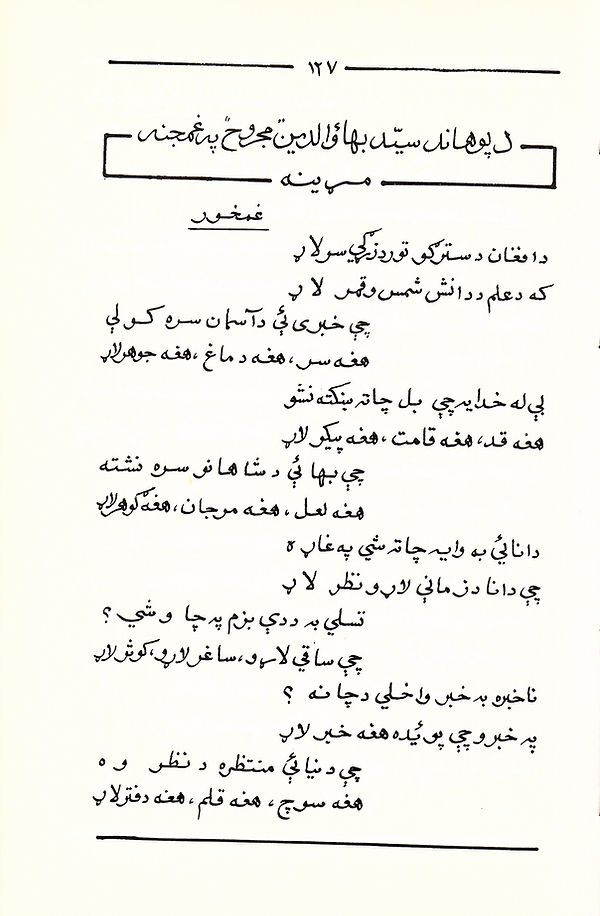 ۱۲۷
د پوهاند سیّد بهاؤالدین "مجروح" په غمجنه
مړینه
غمخور
د افغان د سترګو تور د زړګي سر لاړ
که د علم د دانش شمس و قمر لاړ
چې خبرې ئې د آسمان سره کولې
هغه سر، هغه دماغ، هغه جوهر لاړ
بې له خدایه چې بل چاته ښکته نشو
هغه قد، هغه قامت، هغه پیکر لاړ
چې بها ئې د شاهانو سره نشته
هغه لعل، هغه مرجان، هغه ګوهر لاړ
دانائي به وایه چاته شي په غاړه
چې دانا د زمانې لاړ و نظر لاړ
تسلي به د دې بزم په چا وشي؟
چې ساقي لاړ و، ساغر لاړ و، کوثر لاړ
ناخبره به خبر واخلي د چا نه؟
په خبرو چې پوئیده هغه خبر لاړ
چې دنیا ئې منتظره د نظر وه
هغه سوچ، هغه قلم، هغه دفتر لاړ